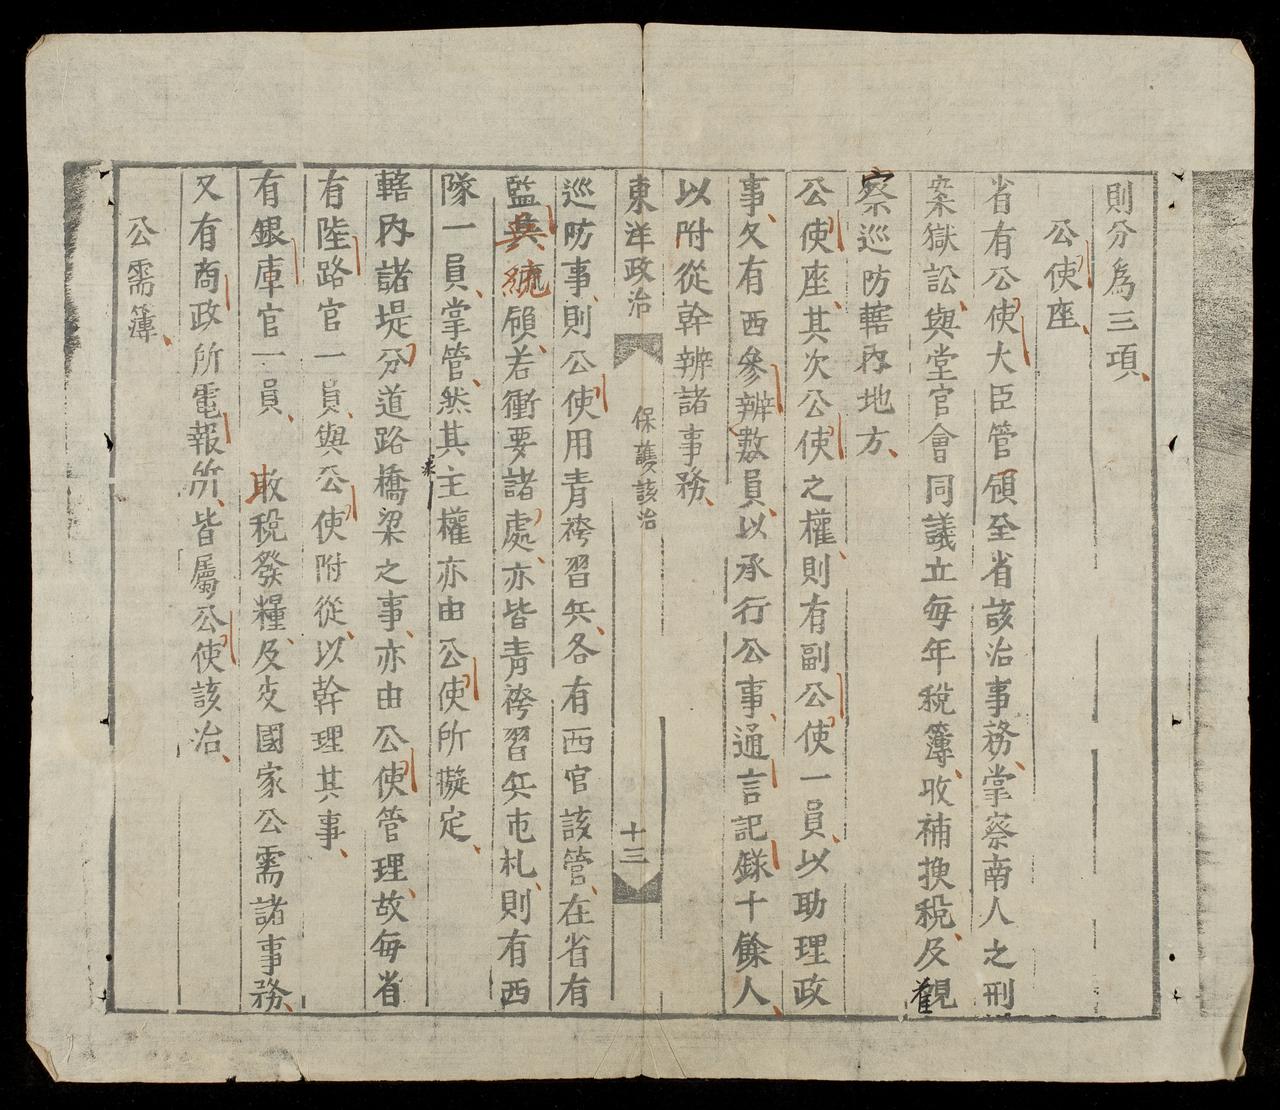 則分爲三項、
公使座、
省有公使大臣管領至省該治事務、掌察南人之刑
案獄訟、與堂官會同議立每年稅簿、收補換稅、及觀
察巡防轄內地方、
公使座、其次公使之權、則有副公使一員、以助理政
事、又有西參辨數員、以承行公事、通言記錄十餘人、
以附從幹辨諸事務、
東洋政治
保護該治
十三
巡防事、則公使用青袴習兵、各有西官該管、在省有
監兵統領、若衝要諸處、亦皆青袴習兵屯札、則有西
隊一員、掌管、然其主權亦由公使所擬定、
轄內諸堤分道路橋梁之事、亦由公使管理、故每省
有陸路官一員、與公使附從、以幹理其事、
有銀庫官一員、 收稅發糧、及支國家公需諸事務、
又有商政所電報所、皆屬公使該治、
公需簿、